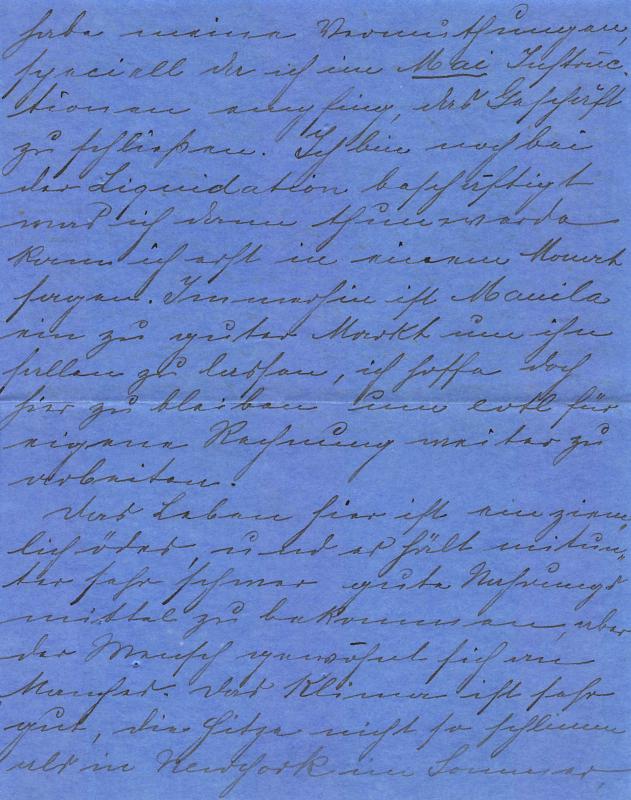 habe meine Vermuthungen,
speciell da ich im Mai Instruc-
tionen empfing, das Geschäft
zu schließen. Ich bin noch bei
der Liquidation beschäftigt
was ich dann thun werde
kann ich erst in einem Monat
sagen. Immerhin ist Manila
ein zu guter Markt um ihn
fallen zu lassen, ich hoffe doch
hier zu bleiben um evtl für
eigene Rechnung weiter zu
arbeiten.
Das Leben hier ist ein ziem-
lich ödes, und es hält mitun-
ter sehr schwer gute Nahrungs
mittel zu bekommen, aber
der Mensch gewöhnt sich an
Manches. Das Klima ist sehr
gut, die Hitze nicht so schlimm
als in Newyork im Sommer,